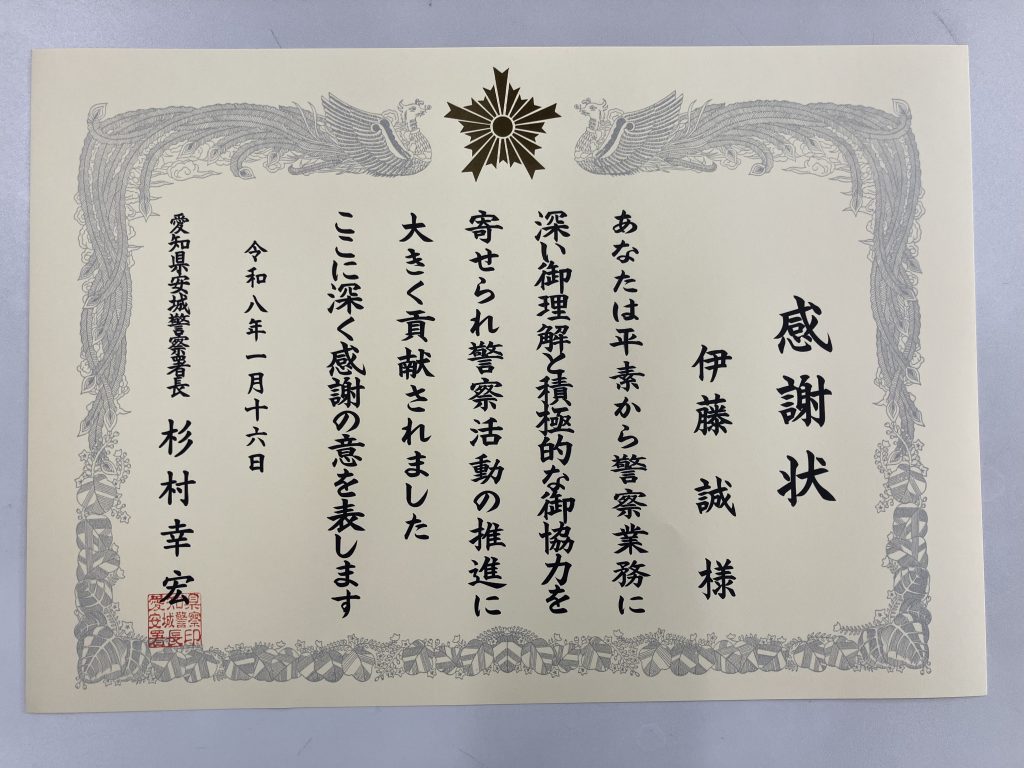 感謝状
伊藤誠様
あなたは平素から警察業務に
深い御理解と積極的な御協力を
寄せられ警察活動の推進に
大きく貢献されました
ここに深く感謝の意を表します
令和八年一月十六日
愛知県安城警察署長 杉村幸宏
愛知県
安城警察
署長印